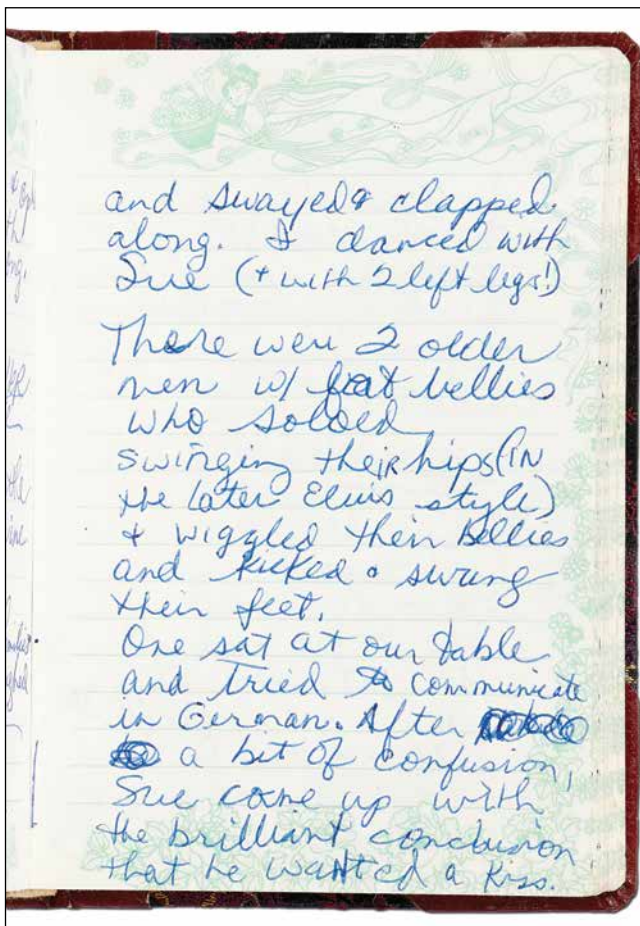 and swayed & clapped
along. I danced with
Sue (+ with 2 left legs!)
There were 2 older
men w/ fat bellies
who soloed
swinging their hips (in
the later Elvis style)
+ wiggled their bellies
and kicked & swung
their feet.
One sat at our table
and tried to communicate
in German. After
a bit of confusion,
Sue came up with
the brilliant conclusion
that he wanted a kiss.